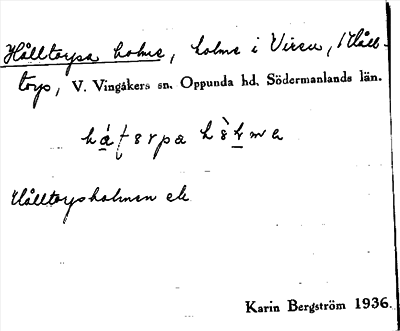 Hålltorpa holme, holme i Viren, Håll-
torp, V. Vingåkers sn, Oppunda hd, Södermanlands län.
Hålltorpsholmen ek
Karin Bergström 1936.